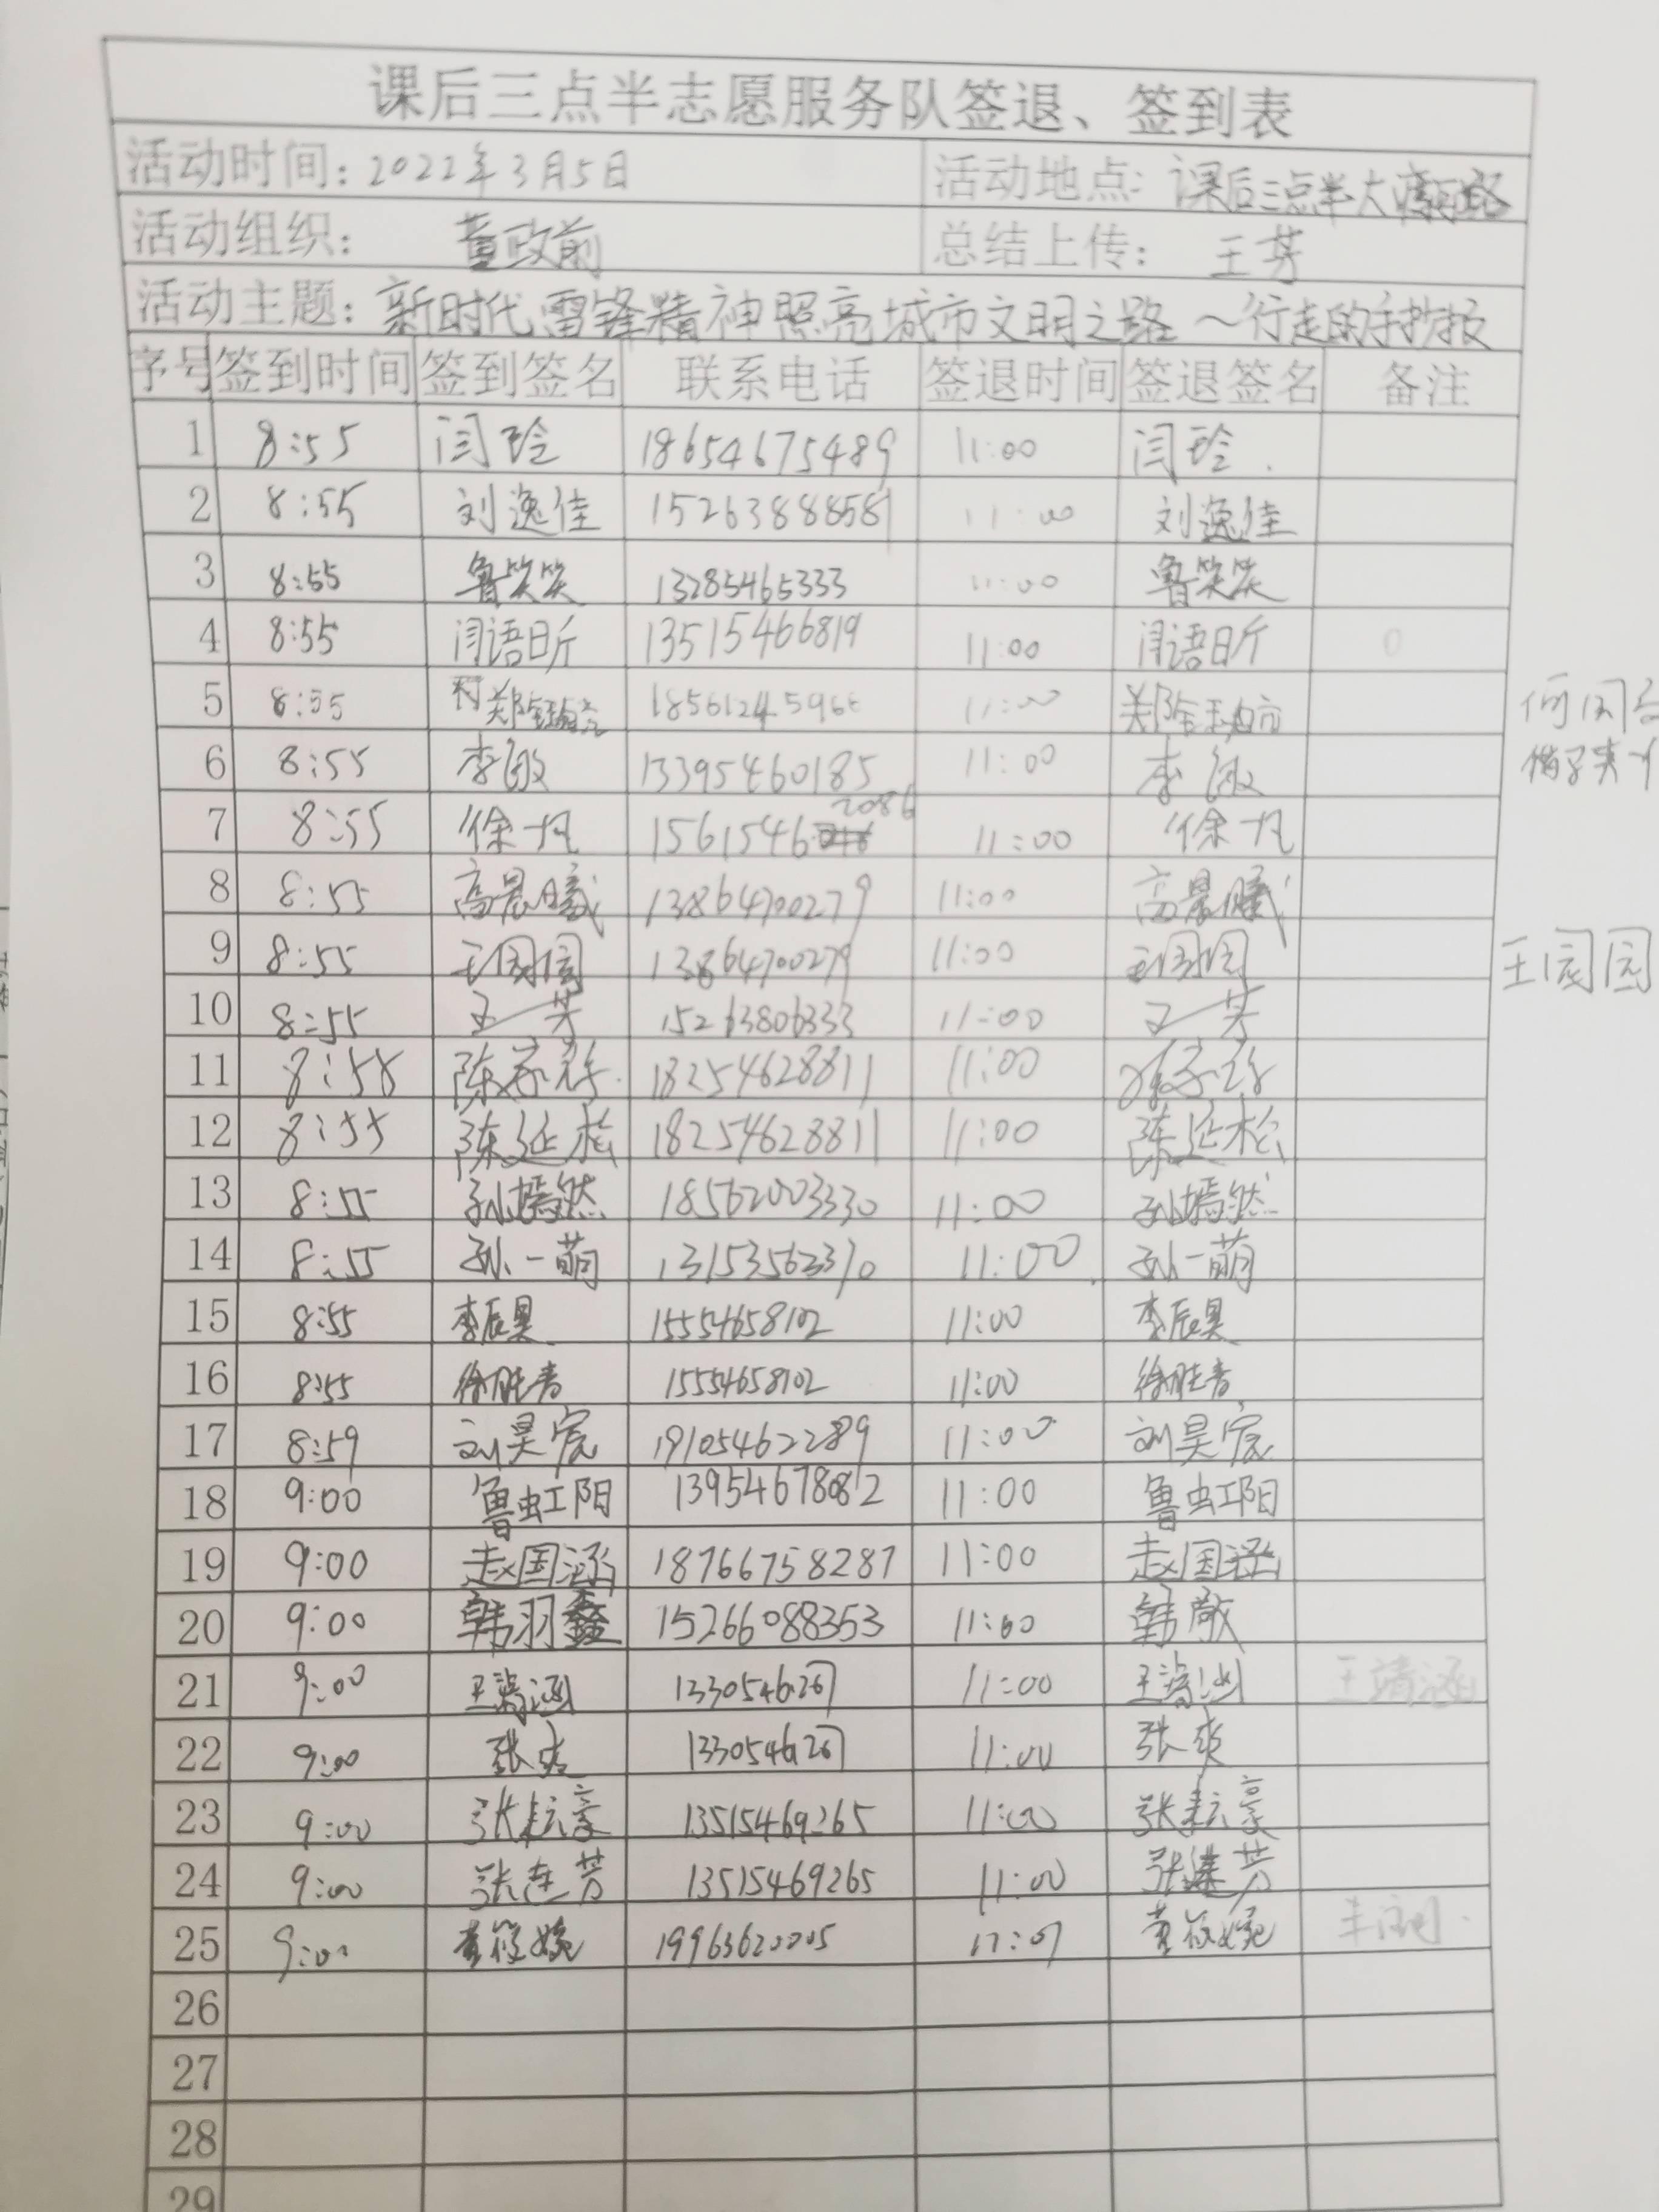 课后三点半志愿服务队签退、签到表
活动时间：2022年3月5日 活动地点：课后三点半大
活动组织：董政前 总结上传：王芳
活动主题：新时代雷锋精神照亮城市文明之路～行走的手抄报
序号 签到时间 签到签名 联系电话 签退时间 签退签名 备注
1 8:55 闫玲 18654675489 11:00 闫玲
2 8:55 刘逸佳 15263888581 11:00 刘逸佳
3 8:55 鲁笑笑 13285465333 11:00 鲁笑笑
4 8:55 闫语昕 13515466819 11:00 闫语昕
5 8:55 11:00
6 8:55 李敏 13395460185 11:00 李敏
7 8:55 徐凡 15615462086 11:00 徐凡
8 8:55 高晨曦 13864700279 11:00 高晨曦
9 8:55 王园园 13864700279 11:00 王园园 王园园
10 8:55 王芳 15263806333 11:00 王芳
11 8:58 18254628811 11:00
12 8:55 陈延松 18254628811 11:00 陈延松
13 8:55 孙嫣然 18562003330 11:00 孙嫣然
14 8:55 孙一萌 13153562370 11:00 孙一萌
15 8:55 李辰昊 15554658102 11:00 李辰昊
16 8:55 徐胜青 15554658102 11:00 徐胜青
17 8:59 刘昊宸 19105462289 11:00 刘昊宸
18 9:00 鲁虹阳 13954678082 11:00 鲁虹阳
19 9:00 赵国涵 18766758287 11:00 赵国涵
20 9:00 韩羽鑫 15266088353 11:00 韩敬
21 9:00 王靖涵 11:00 王靖涵 王靖涵
22 9:00 张爽 11:00 张爽
23 9:00 张耘豪 13515469265 11:00 张耘豪
24 9:00 张莲芳 13515469265 11:00 张莲芳
25 9:00 黄筱婉 19963620005 黄筱婉
26
27
28
29